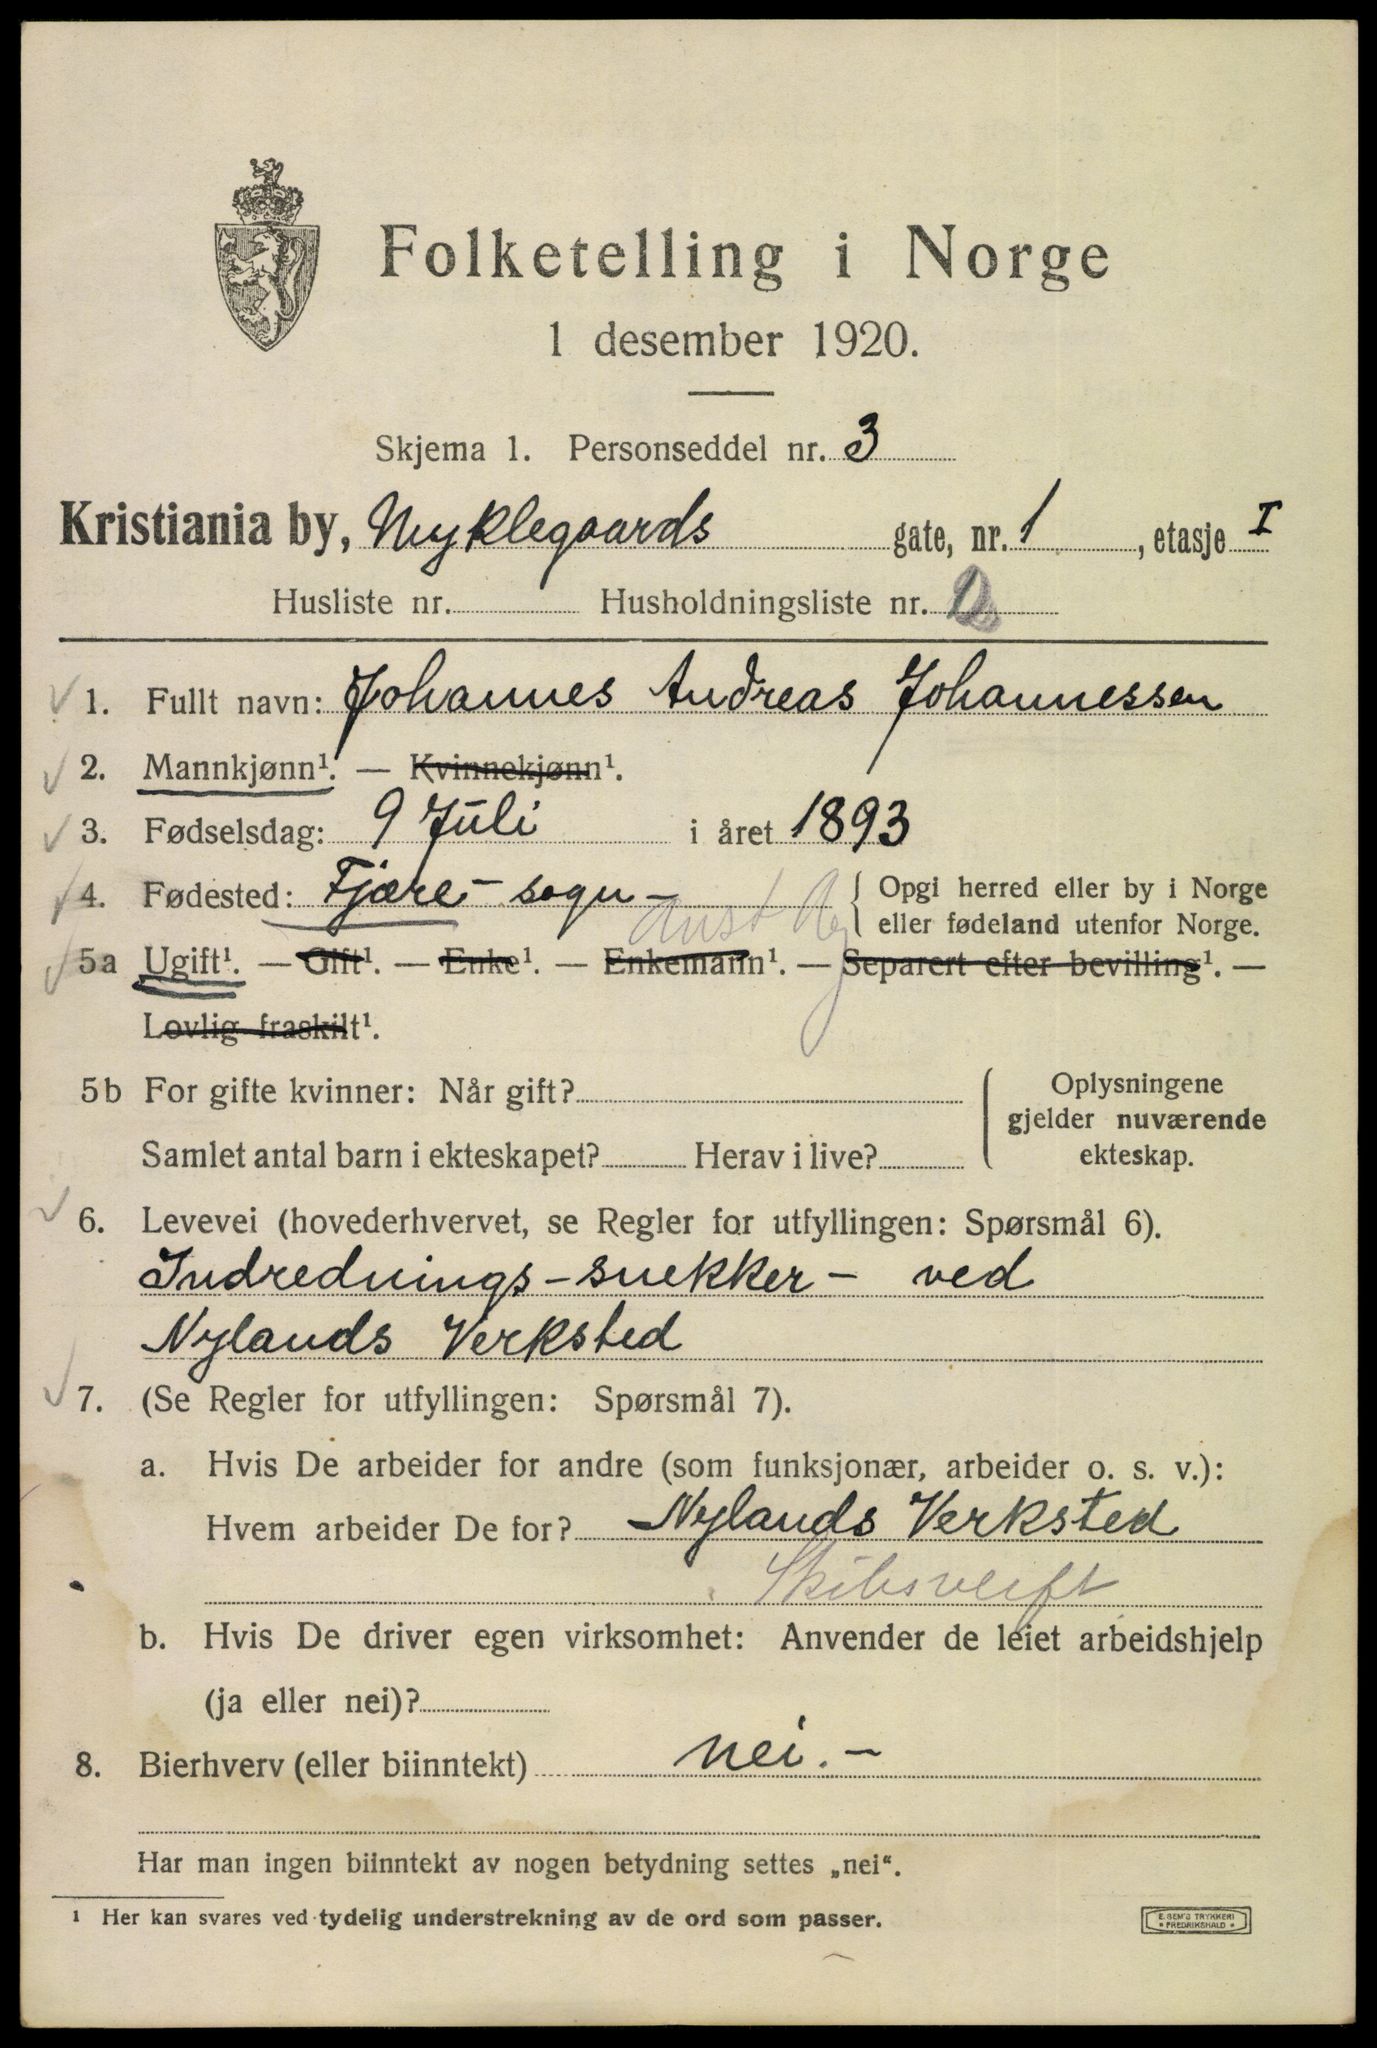 Folketelling i Norge
1 desember 1920.
Skjema 1. Personseddel nr. 3
Kristiania by, Nyklegaards gate, nr. 1, etasje I
Husliste nr. Husholdningsliste nr.
1. Fullt navn: Johannes Andreas Johannessen
2. Mannkjønn¹. — Kvinnekjønn¹.
3. Fødselsdag: 9 Juli i året 1893
4. Fødested: Fjære - sogn - Opgi herred eller by i Norge
Aust Ag eller fødeland utenfor Norge.
5a Ugift¹. — Gift¹. — Enke¹. — Enkemann¹. — Separert efter bevilling¹. —
Lovlig fraskilt¹.
5b For gifte kvinner: Når gift? Oplysningene
gjelder nuværende
Samlet antal barn i ekteskapet? Herav i live? ekteskap.
6. Levevei (hovederhvervet, se Regler for utfyllingen: Spørsmål 6).
Indrednings - snekker - ved
Nylands Verksted
7. (Se Regler for utfyllingen: Spørsmål 7).
a. Hvis De arbeider for andre (som funksjonær, arbeider o. s. v.):
Hvem arbeider De for? Nylands Verksted
Skibsverft
b. Hvis De driver egen virksomhet: Anvender de leiet arbeidshjelp
(ja eller nei)?
8. Bierhverv (eller biinntekt) nei. -
Har man ingen biinntekt av nogen betydning settes „nei“.
¹ Her kan svares ved tydelig understrekning av de ord som passer.
E. SEM'S TRYKKERI
* FREDRIKSHALD *